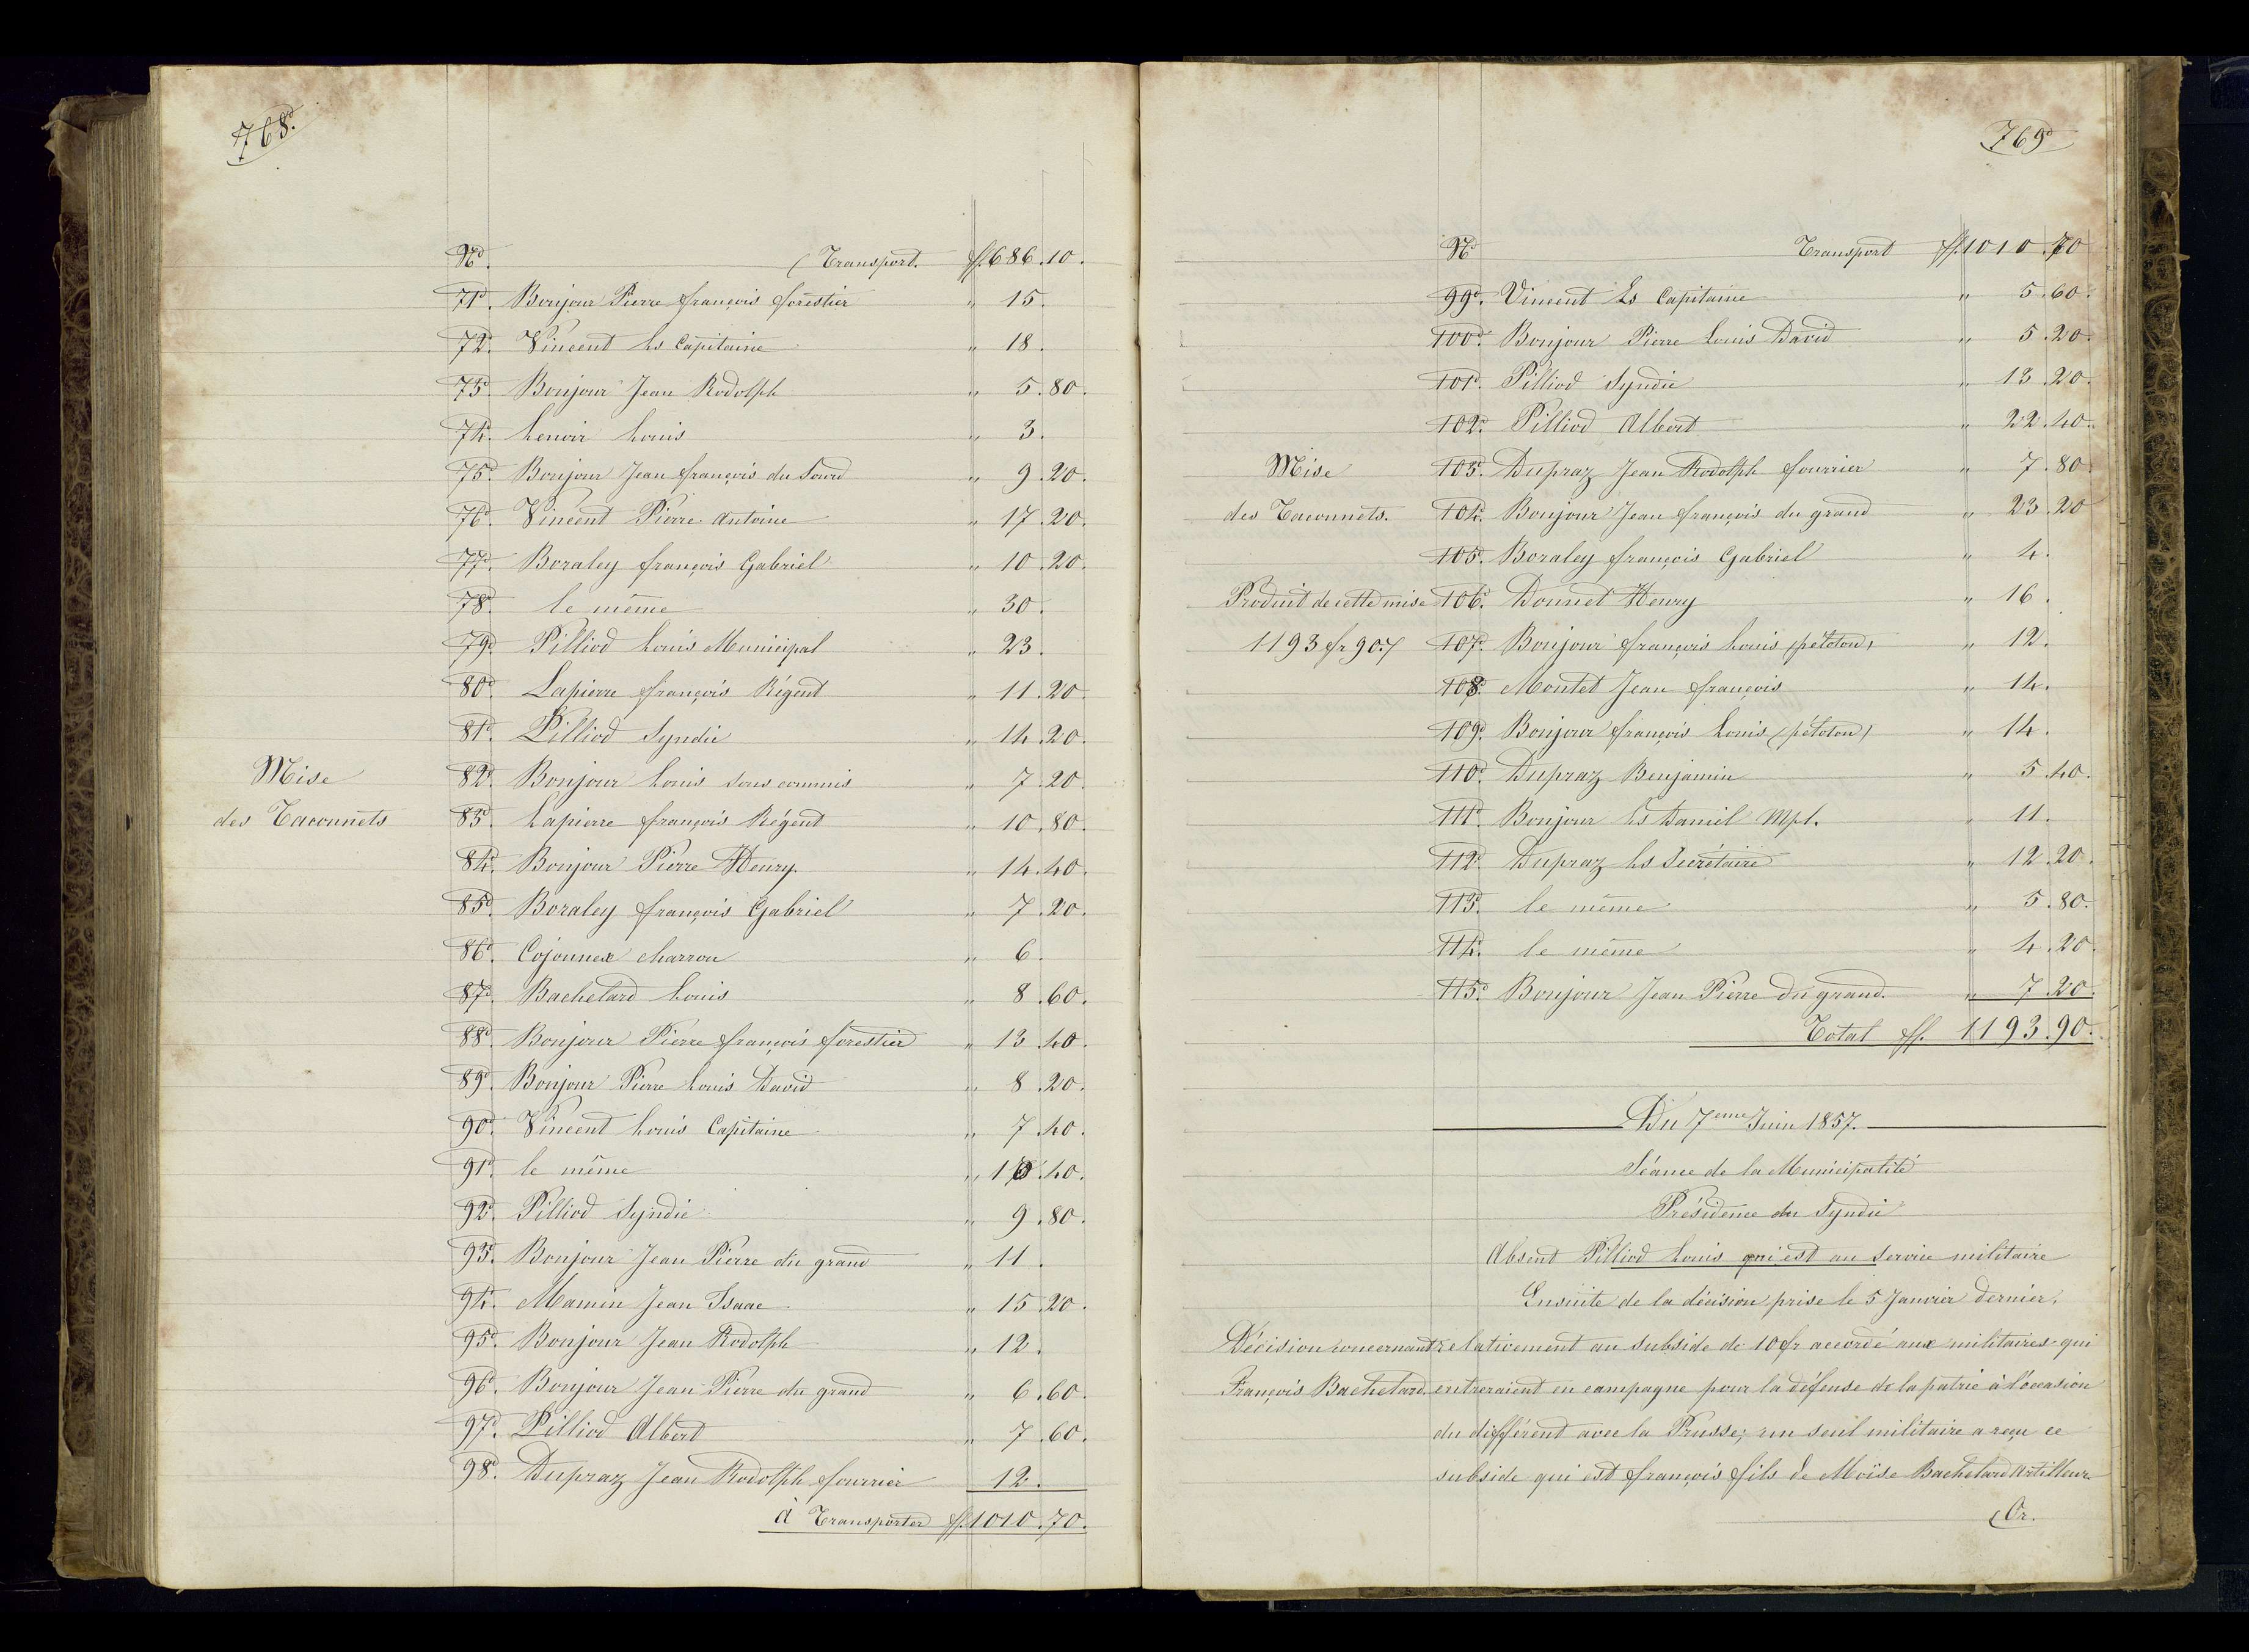 768.
No. Transport. ff. 686.10.
71o. Bonjour Pierre françois forestier " 15.
72o. Vincent Ls Capitaine " 18.
73o. Bonjour Jean Rodolph " 5.80.
74o. Lenoir Louis " 3.
75o. Bonjour Jean françois du Sourd " 9.20.
76o. Vincent Pierre Antoine " 17.20.
77o. Boraley françois Gabriel " 10.20.
78o. le même " 30.
79o. Pilliod Louis Municipal " 23.
80o. Lapierre françois Régent " 11.20.
81o. Pilliod Syndic " 14.20.
Mise
82o. Bonjour Louis sous commis " 7.20.
des Taconnets
83o. Lapierre françois Régent " 10.80.
84o. Bonjour Pierre Henry. " 14.40.
85o. Boraley françois Gabriel " 7.20.
86o. Cojonnex charron " 6.
87o. Bachelard Louis " 8.60.
88o. Bonjour Pierre françois forestier " 13.40.
89o. Bonjour Pierre Louis David " 8.20.
90o. Vincent Louis Capitaine " 7.40.
91o. le même " 10.40.
92o. Pilliod Syndic " 9.80.
93o. Bonjour Jean Pierre du grand " 11.
94o. Mamin Jean Isaac " 15.20.
95o. Bonjour Jean Rodolph " 12.
96o. Bonjour Jean Pierre du grand " 6.60.
97o. Pilliod Albert " 7.60.
98o. Dupraz Jean Rodolph fourrier 12.
à Transporter ff. 1010.70.
769o
No Transport ff. 1010.70
99o. Vincent Ls Capitaine " 5.60.
100o. Bonjour Pierre Louis David " 5.20.
101o. Pilliod Syndic " 13.20.
102o. Pilliod Albert " 22.40.
Mise
103o. Dupraz Jean Rodolph fourrier " 7.80.
des Taconnets.
104o. Bonjour Jean françois du grand " 23.20
105o. Boraley françois Gabriel " 4.
Produit de cette mise
106o. Donnet Henry " 16.
1193 fr 90.
107o. Bonjour françois Louis (pétoton) " 12.
108o. Montet Jean françois " 14.
109o. Bonjour françois Louis (pétoton) " 14.
110o. Dupraz Benjamin " 5.40.
111o. Bonjour Ls Daniel Mpl. " 11.
112o. Dupraz Ls Secrétaire " 12.20.
113o. le même " 5.80.
114o. le même " 4.20.
115o. Bonjour Jean Pierre Du grand. " 7.20.
Total ff. 1193.90.
Du 7eme Juin 1857.
Séance de la Municipalité
Présidence du Syndic
Absent Pilliod Louis qui est au service militaire
Ensuite de la décision prise le 5 Janvier dernier,
Décision concernant
relativement au subside de 10 fr accordé aux militaires qui
François Bachelard.
entreraient en campagne pour la défense de la patrie à l'occasion
du différent avec la Prusse; un seul militaire a reçu ce
subside qui est françois fils de Moïse Bachelard Artilleur.
Or.